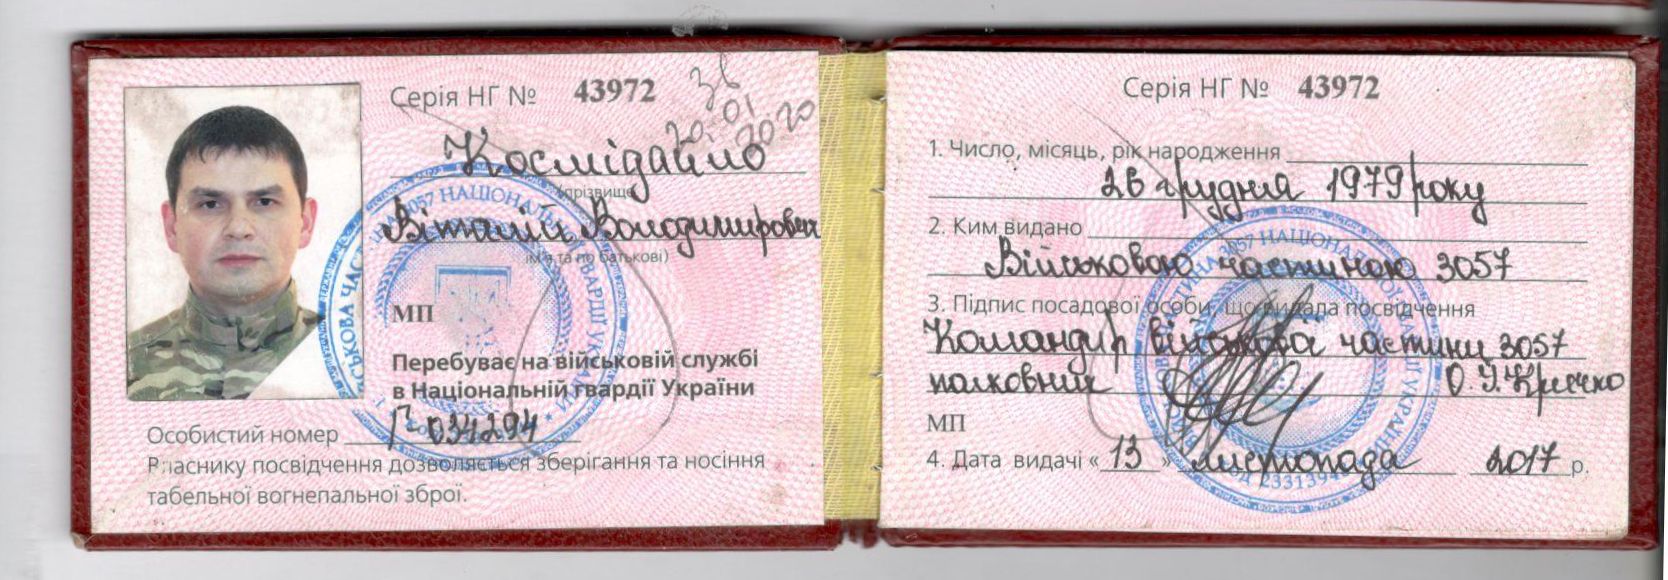 Серія НГ № 43972
Зв
20.01
2020
Космідайло
(прізвище
Віталій Володимирович
ім'я та по батькові)
МП
Перебуває на військовій службі
в Національній гвардії України
Особистий номер Г-034294
Власнику посвідчення дозволяється зберігання та носіння
табельної вогнепальної зброї.
Серія НГ № 43972
1. Число, місяць, рік народження
26 грудня 1979 року
2. Ким видано
Військовою частиною 3057
3. Підпис посадової особи, що видала посвідчення
Командир військової частини 3057
полковник
МП
4. Дата видачі « 13 » листопада 2017 р.